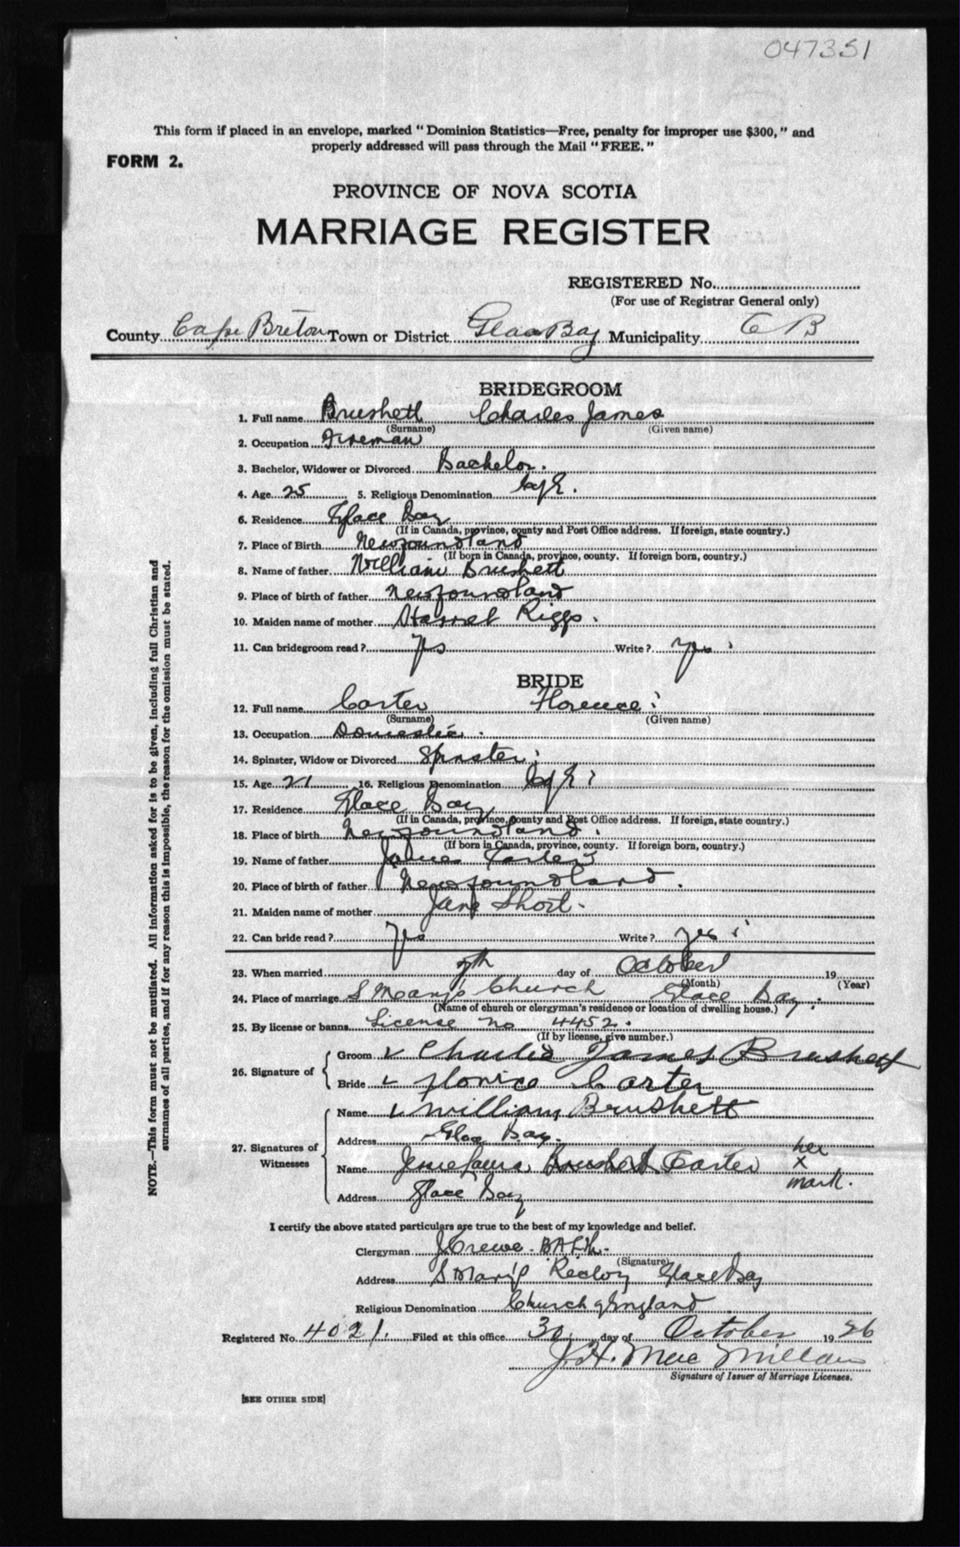 047351
This form if placed in an envelope, marked "Dominion Statistics—Free, penalty for improper use $300," and
properly addressed will pass through the Mail "FREE."
FORM 2.
PROVINCE OF NOVA SCOTIA
MARRIAGE REGISTER
REGISTERED No.
(For use of Registrar General only)
County Cape Breton Town or District Glace Bay Municipality C B
BRIDEGROOM
1. Full name Brushett Charles James
(Surname) (Given name)
2. Occupation Fireman
3. Bachelor, Widower or Divorced Bachelor.
4. Age 25 5. Religious Denomination C of E.
6. Residence Glace Bay
(If in Canada, province, county and Post Office address. If foreign, state country.)
7. Place of Birth Newfoundland
(If born in Canada, province, county. If foreign born, country.)
8. Name of father William Brushett
9. Place of birth of father Newfoundland
10. Maiden name of mother Harriet Riggs.
11. Can bridegroom read? Yes Write? Yes
BRIDE
12. Full name Carter Florence
(Surname) (Given name)
13. Occupation Domestic.
14. Spinster, Widow or Divorced Spinster
15. Age 21 16. Religious Denomination C of E
17. Residence Glace Bay
(If in Canada, province, county and Post Office address. If foreign, state country.)
18. Place of birth Newfoundland.
(If born in Canada, province, county. If foreign born, country.)
19. Name of father James Carter
20. Place of birth of father Newfoundland.
21. Maiden name of mother Jane Short.
22. Can bride read? Yes Write? Yes
23. When married 7th day of October 19
(Month) (Year)
24. Place of marriage S Mary's Church Glace Bay.
(Name of church or clergyman's residence or location of dwelling house.)
25. By license or banns License no 4452.
(If by license, give number.)
26. Signature of
Groom Charles James Brushett
Bride Florice Carter
27. Signatures of Witnesses
Name William Brushett
Address Glace Bay.
Name Carter her x mark.
Address Glace Bay
I certify the above stated particulars are true to the best of my knowledge and belief.
Clergyman J Crewe
(Signature)
Address S Mary's Rectory Glace Bay
Religious Denomination Church of England
Registered No. 4021. Filed at this office 30 day of October 1926
J. H. MacMillan
Signature of Issuer of Marriage Licenses.
[SEE OTHER SIDE]
NOTE.—This form must not be mutilated. All information asked for is to be given, including full Christian and
surnames of all parties, and if for any reason this is impossible, the reason for the omission must be stated.